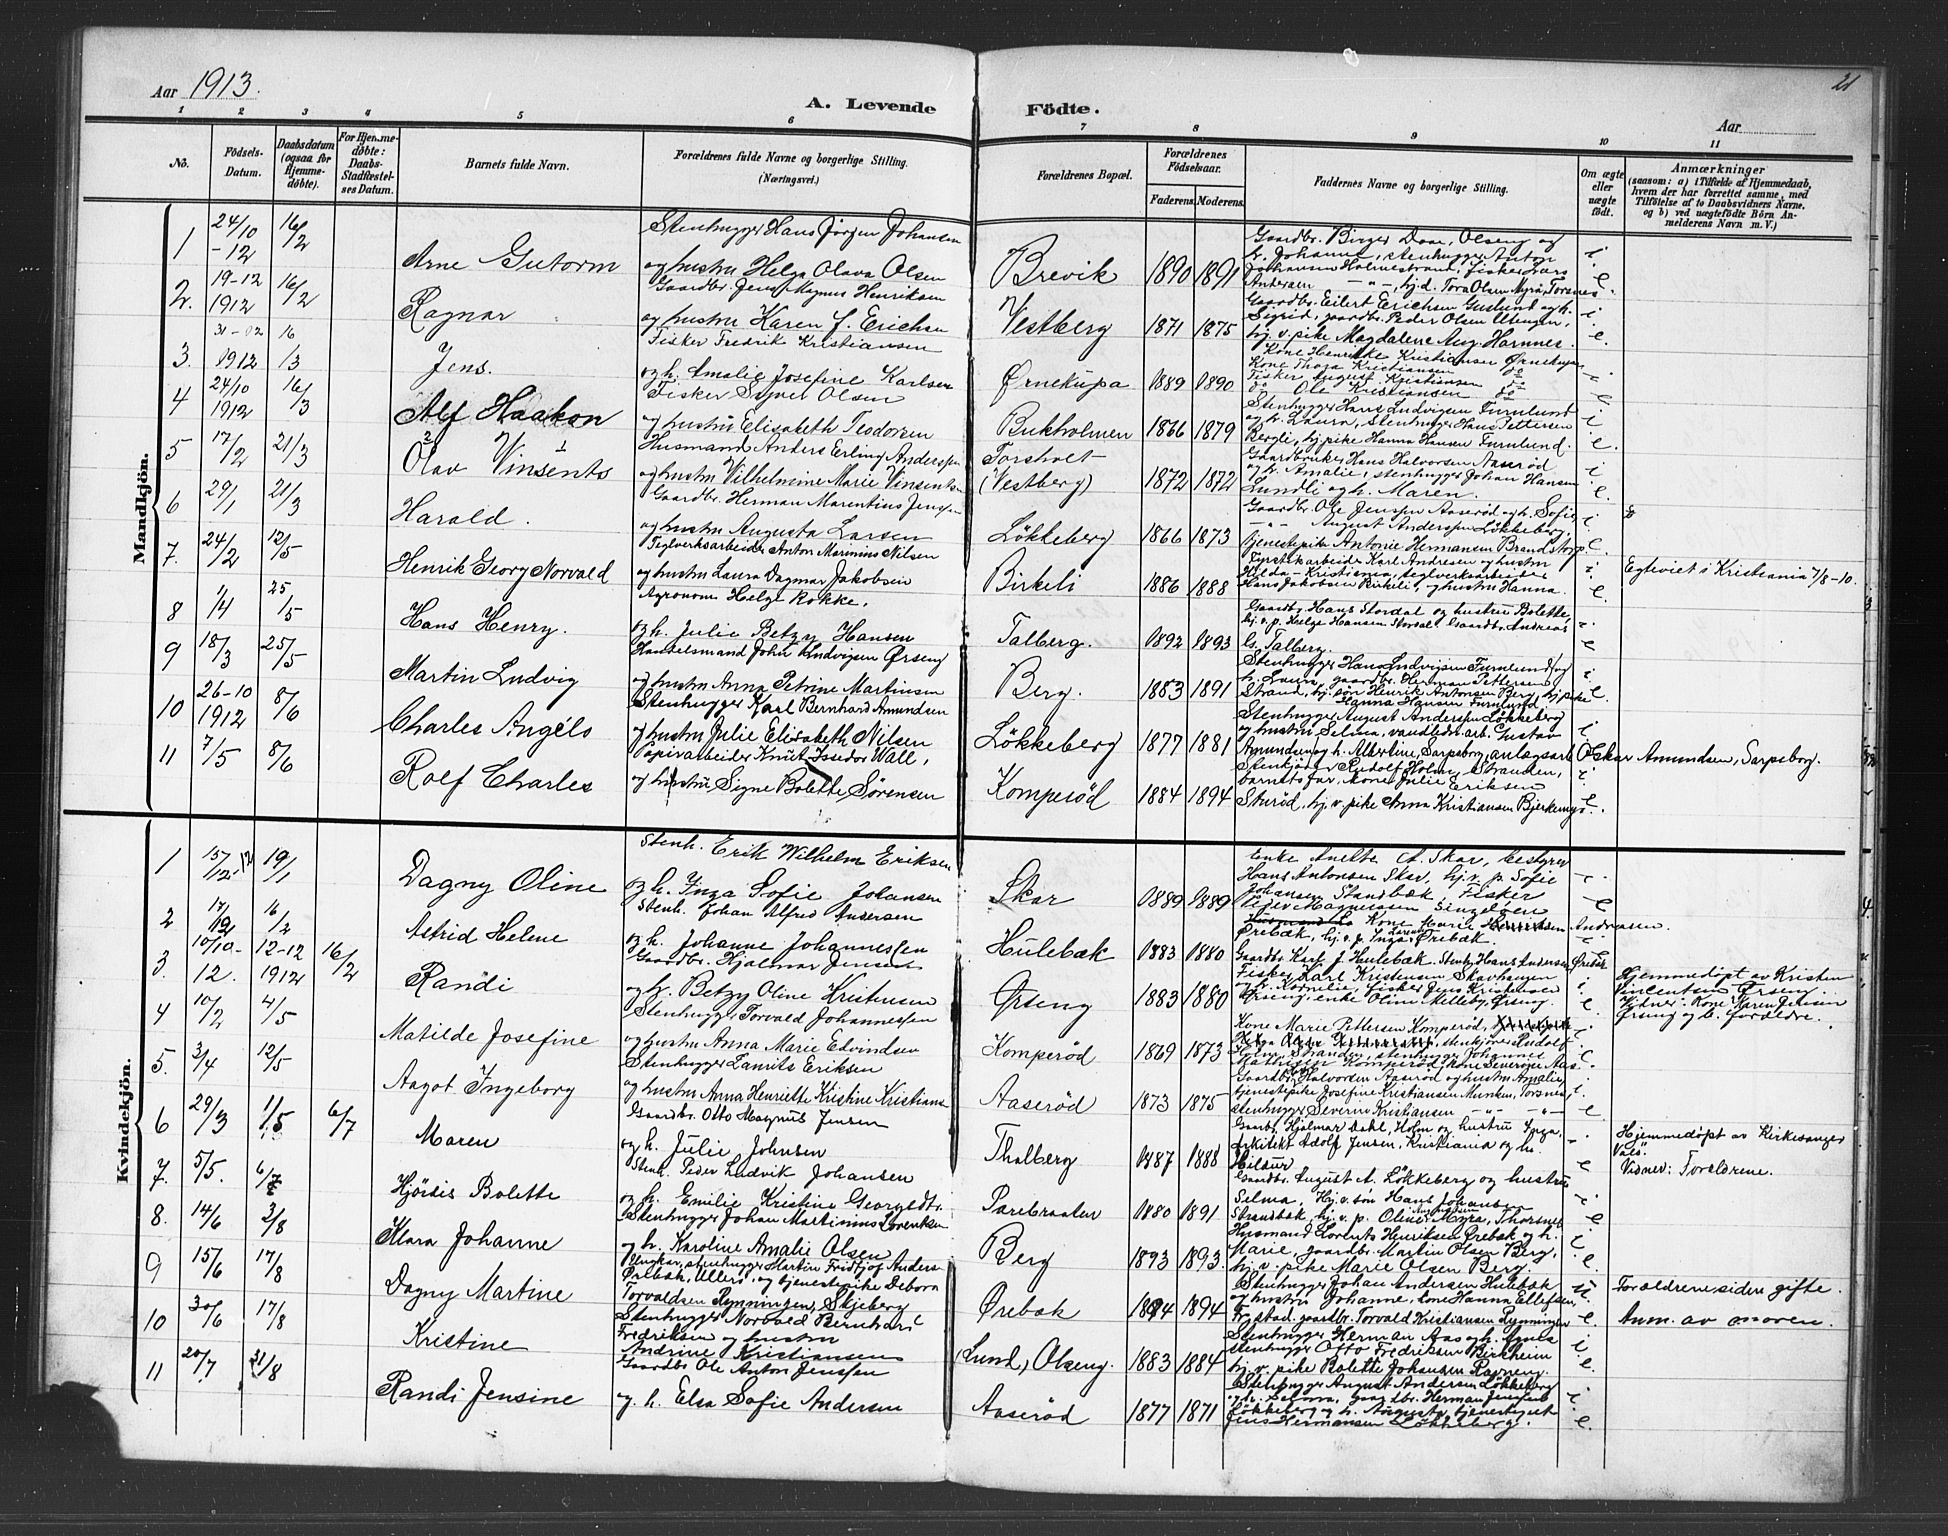 Aar 1913.
A. Levende Födte.
21
Aar
1 2 3 4 5 6 7 8 9 10 11
No.
Födsels-Datum.
Daabsdatum (ogsaa for Hjemmedöbte).
For Hjemmedöbte: Daabs-Stadfæstelses Datum.
Barnets fulde Navn.
Forældrenes fulde Navne og borgerlige Stilling.
(Næringsvei.)
Forældrenes Bopæl.
Forældrenes Födselsaar.
Faderens. Moderens.
Faddernes Navne og borgerlige Stilling.
Om ægte eller uægte födt.
Anmærkninger
(saasom: a) i Tilfælde af Hjemmedaab, hvem der har forrettet samme, med Tilföielse af to Daabsvidners Navne. og b) ved uægtefödte Börn Anmelderens Navn m. V.)
Mandkjön.
1 24/10 -12 16/2 Arne Gutorm Stenhugger Hans Jörgen Johansen
og hustru Helga Olava Olsen Brevik 1890 1891
2. 19-12 1912 16/2 Ragnar Gaardbr. Jens Magnus Henriksen
og hustru Karen J. Erichsen Vestberg 1871 1875
Gaardbr. Eilert Erichsen Guslund og h.
Sigrid, gaardbr. Peder Olsen Utengen,
hj. v. pike Magdalene Aug. Hannes.
3. 31-12 1912 16/3 Jens. Fisker Fredrik Kristiansen
og h. Amalie Josefine Karlsen Ørnekupa 1889 1890
4 24/10 1912 16/3 Alf Haakon Fisker Syver Olsen
og hustru Elisabeth Teodorsen Bukholmen 1866 1879
Stenhugger Hans Ludvigsen Furulund
og h. Laura, stenhugger Hans Pettersen
Bergli, hj. pike Hanna Hansen Furulund.
5 17/2 21/3 Olav Vinsents Husmand Anders Erling Anderssen
og hustru Vilhelmine Marie Vinsentsen Torstvet (Vestberg) 1872 1872
Gaardbruker Hans Halvorsen Aaserød
og h. Amalie, stenhugger Johan Hansen
Lundli og h. Maren.
6 29/1 21/3 Harald. Gaardbr. Herman Marentius Jenssen
og hustru Augusta Larsen Løkkeberg 1866 1873
Gaardbr. Ole Jenssen Aaserød og h. Sofie,
August Anderssen Løkkeberg,
tjenestepike Antonie Hermansen Brandstorp.
7. 24/2 12/5 Henrik Georg Norvald Teglverksarbeider Anton Marinius Nilsen
og hustru Laura Dagmar Jakobsen Birkeli 1886 1888
Hans Jakobsen Birkeli, og hustru Hanna.
Egteviet i Kristiania 7/8-10.
8 1/4 25/5 Hans Henry. Agronom Helge Kokke.
og h. Julie Betzy Hansen Talberg. 1892 1893
Gaardbr. Hans Stordal og hustru Bolette,
hj. v. p. Helge Hansen Stordal, Gaardbr. Andreas
G. Talberg.
9 18/3 25/5 Martin Ludvig Handelsmand John Ludvigsen Ørseng
og hustru Anna Petrine Martinsen Berg. 1883 1891
Stenhugger Hans Ludvigsen Furulund og
h. Laura, gaardbr. Herman Pettersen
Strand, hj. søn Henrik Antonsen Berg, hj. pike
Hanna Hansen Furulund.
10 26-10 1912 8/6 Charles Angéls Stenhugger Karl Bernhard Amundsen
og hustru Julie Elisabeth Nilsen Løkkeberg 1877 1881
Stenhugger August Anderssen Løkkeberg
og hustru Selma, vandledn. arb. Gustav
Amundsen og h. Albertine, Sarpsborg, anlagsarb. Oskar Amundsen, Sarpsborg.
11 7/5 8/6 Rolf Charles Papirarbeider Knut Issidor Wall,
og hustru Signe Bolette Sørensen Komperød 1884 1894
Stenkjører Rudolf Holm, Stranden,
barnets far, Kone Julie Eriksen
Sturød, hj. v. pike Anna Kristiansen Bjerkeng.
Kvindekjön.
1 15/12 12 19/1 Dagny Oline Stenh. Erik Wilhelm Eriksen
og h. Inga Sofie Johansen Skar 1889 1889
Enke Anette A. Skar, bestyrer
Hans Antonsen Skar, hj. v. p. Sofie
Johansen Standbæk Fisker
2 17/12 16/2 Astrid Helene Stenh. Johan Alfred Andersen
og h. Johanne Johannessen Hulebæk 1883 1880
Kone Marie Henriksen Andreasen.
Ørebæk, hj. v. p. Inga Ørebæk.
Gaardbr. Karl J. Hulebæk. Stenh. Hans Andersen Ørebæk
3. 10/10-12. 12-12 1912 16/2 Randi Gaardbr. Hjalmar Jensen
og h. Betzy Oline Kristensen Ørseng 1883 1880
Fisker Karl Kristensen Skavhaugen
og h. Kornelie, fisker Jens Kristensen
Ørseng, enke Oline Melleby, Ørseng.
Hjemmedöpt av Kristen
Vincentsen Ørseng.
Vidner: Kone Karen Jensen
Ørseng og b. forældre.
4 10/2 4/5 Matilde Josefine Stenhugger Torvald Johannessen
og hustru Anna Marie Edvindsen Komperød 1869 1873
Kone Marie Pettersen Komperød,
stenkjører Rudolf
Holm, Stranden, stenhugger Johannes
Mathisen Komperød, Kone Severine Aas.
5. 3/4 12/5 Aagot Ingeborg Stenhugger Laurits Eriksen
og hustru Anna Henriette Kristine Kristians. Aaserød 1873 1875
Gaardbr. Halvorsen Aaserød og hustru Amalie,
tjenestepike Josefine Kristiansen Munken, Torsnes,
stenhugger Severin Kristiansen
6 29/3 11/5 6/7 Maren Gaardbr. Otto Magnus Jensen
og h. Julie Johnsen Thalberg 1887 1888
Gaardbr. Hjalmar Dahl, Holm og hustru Inga,
Arkitekt Adolf Jensen, Kristiania og hr.
Hildur
Hjemmedöpt av Kirkesanger
Vols.
Vidner: Forældrene.
7. 5/5. 6/7 Hjördis Bolette Stenh. Peder Ludvik Johansen
og h. Emilie Kristine Georgsdtr. Parebraaten 1880 1891
Gaardbr. August A. Løkkeberg og hustru
Selma, Hj. v. søn Hans Johansen
Strandbæk, hj. v. p. Oline Myra, Thorsnes
8. 14/6 3/8 Klara Johanne Stenhugger Johan Martinius Lorentsen
og h. Karoline Amalie Olsen Berg 1893 1893.
Husmand Lorents Henriksen Ørebæk og h.
Marie, gaardbr. Martin Olsen Berg,
hj. v. pike Marie Olsen Berg.
9 15/6 17/8 Dagny Martine Ungkar, stenhugger Martin Fridtjof Anders.
Ørebæk, Ullerø, og tjenestepike Debora
Torvaldsen Rynningen, Skjeberg Ørebæk 1894 1894
Stenhugger Johan Andersen Hulebæk
og hustru Johanne, kone Hanna Ellefsen,
Frystad, gaardbr. Torvald Kristiansen Rynningen
Forældrene siden gifte.
Anm. av moren.
10 30/6 17/8 Kristine Stenhugger Norvald Bernhard
Fredriksen og hustru
Andrine Kristiansen (Lund, Olseng. 1883 1884
Stenhugger Herman Aas og h. Agnes
stenhugger Otto Fredriksen Birkheim
hj. v. pike Bolette Johansen
11 20/7 31/8 Randi Jensine Gaardbr. Ole Anton Jenssen
og h. Elsa Sofie Andersen Aaserød 1877 1871
Stenhugger August Andersen Løkkeberg
og h. Selma, gaardbr. Herman Jenssen
Løkkeberg og h. Augusta, tjenestegut
Jens Hermansen Løkkeberg.